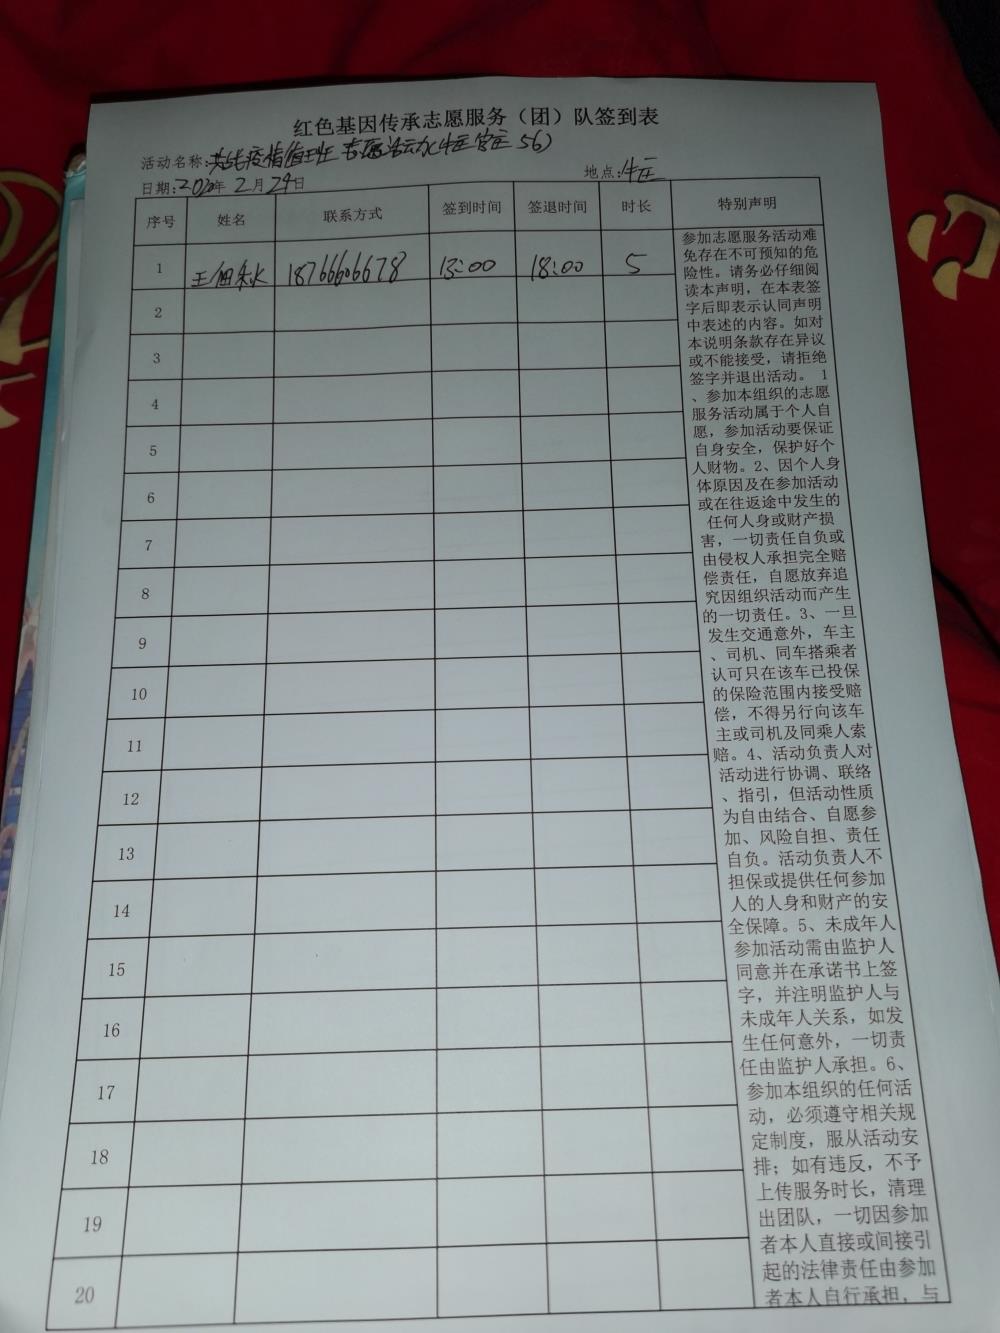 红色基因传承志愿服务（团）队签到表
活动名称:共战疫情值班志愿活动(牛王官庄56)
日期:2020年2月24日 地点:牛王
序号 姓名 联系方式 签到时间 签退时间 时长 特别声明
1 18766606678 13:00 18:00 5
2
3
4
5
6
7
8
9
10
11
12
13
14
15
16
17
18
19
20
参加志愿服务活动难
免存在不可预知的危
险性。请务必仔细阅
读本声明，在本表签
字后即表示认同声明
中表述的内容。如对
本说明条款存在异议
或不能接受，请拒绝
签字并退出活动。 1
、参加本组织的志愿
服务活动属于个人自
愿，参加活动要保证
自身安全，保护好个
人财物。2、因个人身
体原因及在参加活动
或在往返途中发生的
任何人身或财产损
害，一切责任自负或
由侵权人承担完全赔
偿责任，自愿放弃追
究因组织活动而产生
的一切责任。3、一旦
发生交通意外，车主
、司机、同车搭乘者
认可只在该车已投保
的保险范围内接受赔
偿，不得另行向该车
主或司机及同乘人索
赔。4、活动负责人对
活动进行协调、联络
、指引，但活动性质
为自由结合、自愿参
加、风险自担、责任
自负。活动负责人不
担保或提供任何参加
人的人身和财产的安
全保障。5、未成年人
参加活动需由监护人
同意并在承诺书上签
字，并注明监护人与
未成年人关系，如发
生任何意外，一切责
任由监护人承担。6、
参加本组织的任何活
动，必须遵守相关规
定制度，服从活动安
排；如有违反，不予
上传服务时长，清理
出团队，一切因参加
者本人直接或间接引
起的法律责任由参加
者本人自行承担，与